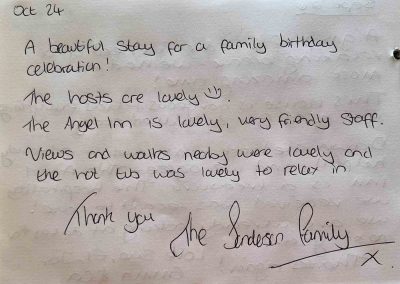 Oct 24
A beautiful stay for a family birthday
celebration!
The hosts are lovely ☺.
The Angel Inn is lovely, very friendly staff.
Views and walks nearby were lovely and
the hot tub was lovely to relax in
Thank you
The Family
X